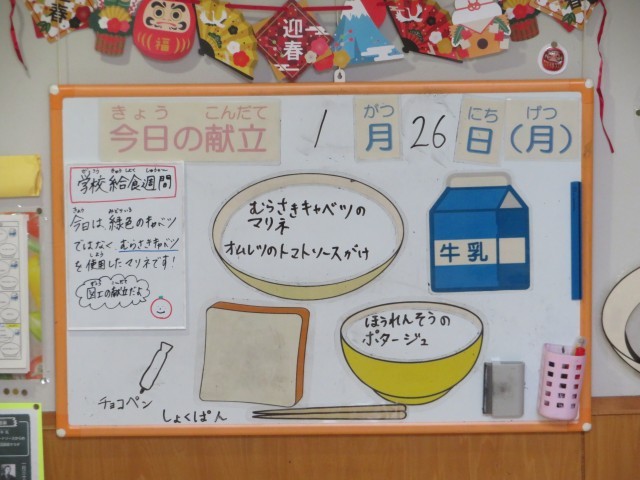 迎春
福
きょう こんだて
今日の献立
1
がつ
月
26
にち
日
げつ
(月)
がっこう きゅうしょく しゅうかん
学校給食週間
きょう みどりいろ
今日は、緑色のキャベツ
ではなく、むらさきキャベツ
しよう
を使用したマリネです!
むらさきキャベツの
マリネ
オムレツのトマトソースがけ
牛乳
ほうれんそうの
ポタージュ
チョコペン
しょくぱん